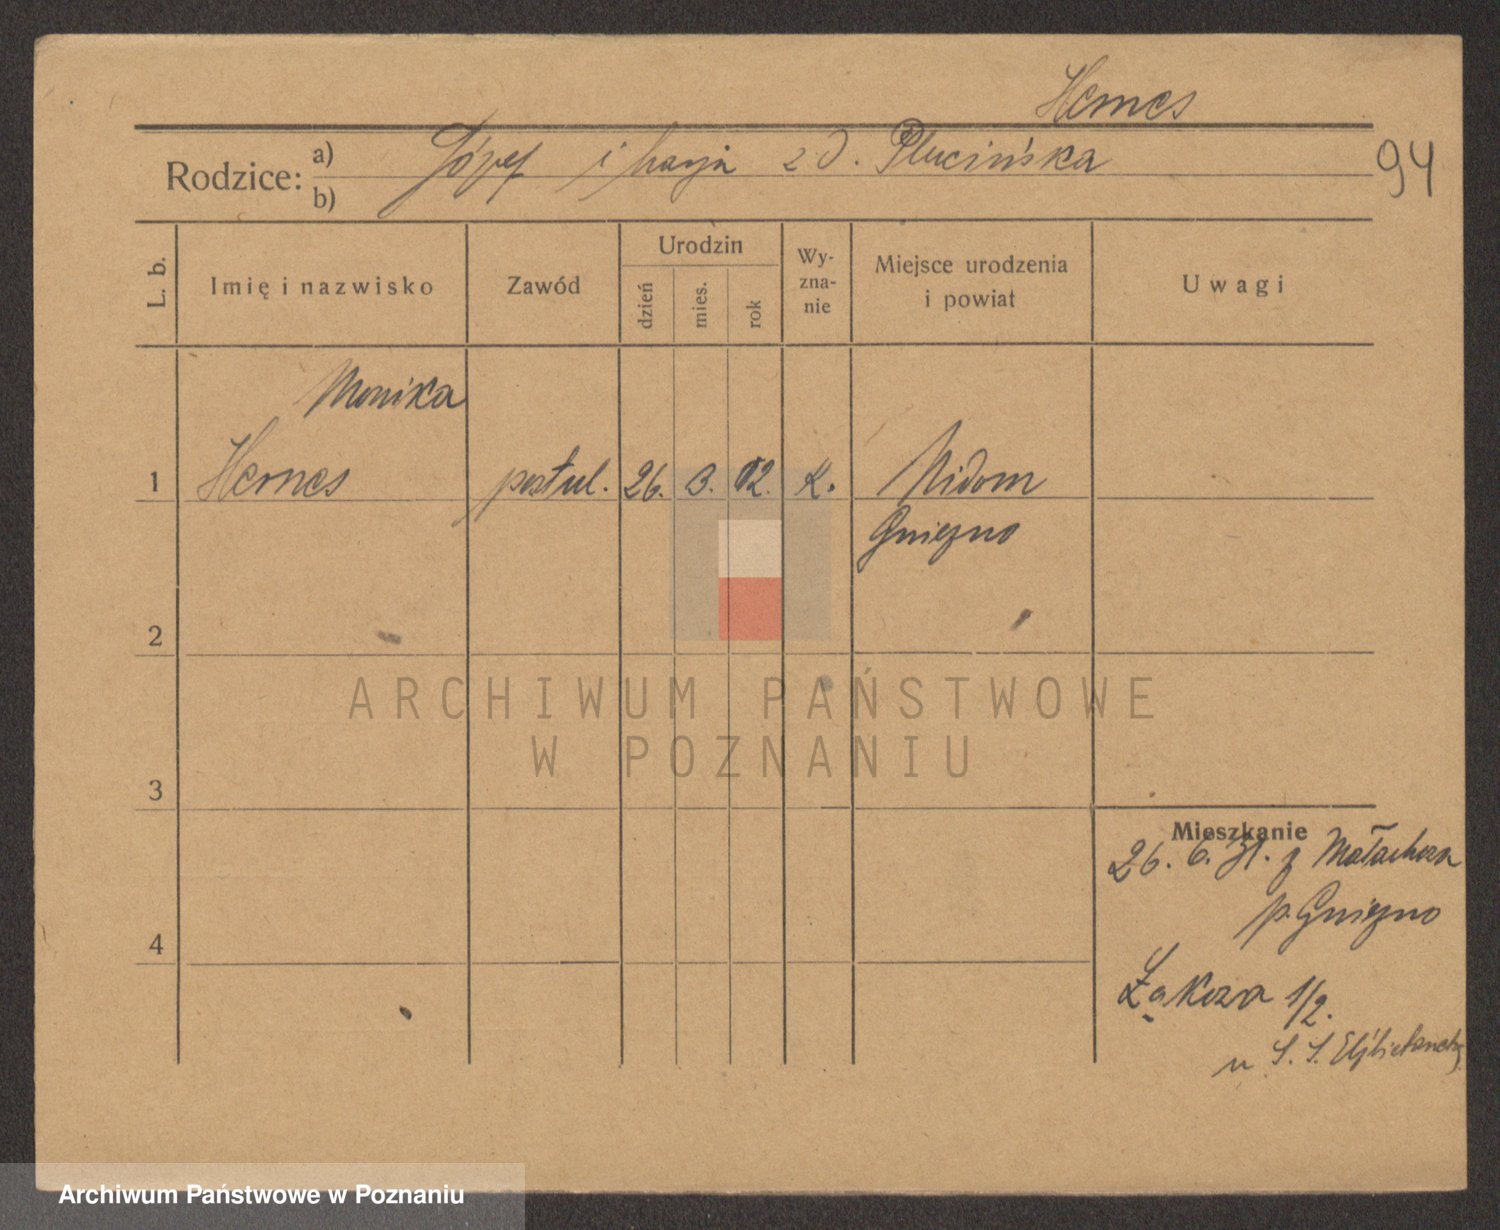 Hemes
94
Rodzice: a) Józef i Marja z d. Plucińska
b)
L. b.
Imię i nazwisko
Zawód
Urodzin
dzień
mies.
rok
Wy-
zna-
nie
Miejsce urodzenia
i powiat
Uwagi
Monika
1 Hemes postul. 26. 3. 12. K. Nidom
Gniezno
2
ARCHIWUM PAŃSTWOWE
W POZNANIU
3
Mieszkanie
26. 6. 31. z
p. Gniezno
4
Łąkowa 1/2.
u S. S. Elżbietanek
Archiwum Państwowe w Poznaniu